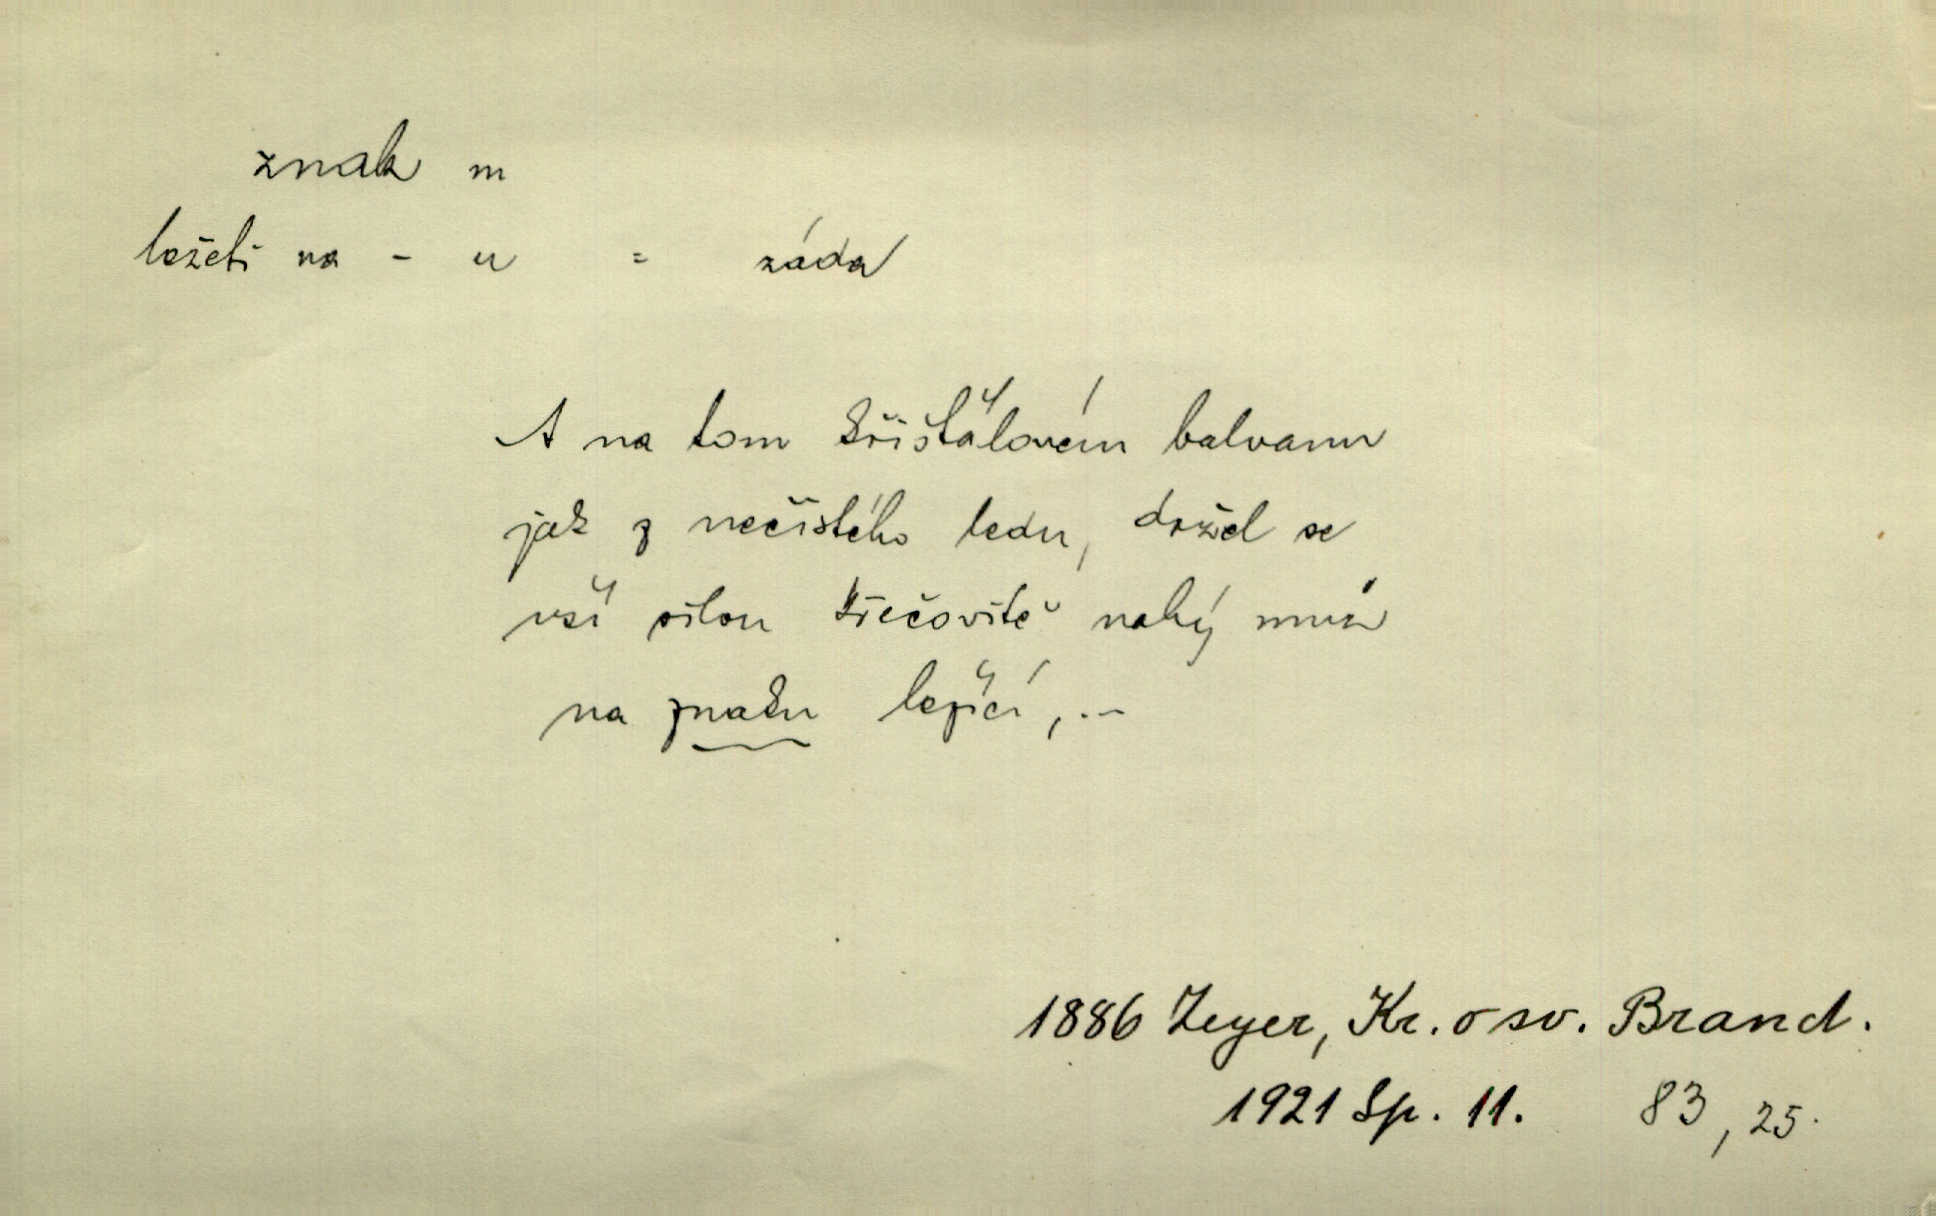 znak m
ležeti na - u = záda
A na tom křišťálovém balvanu
jak z nečistého ledu, držel se
vší silou křečovitě nahý muž
na znaku ležící, ...
1886 Zeyer, Kr. o sv. Brand.
1921 Sp. 11. 83, 25.